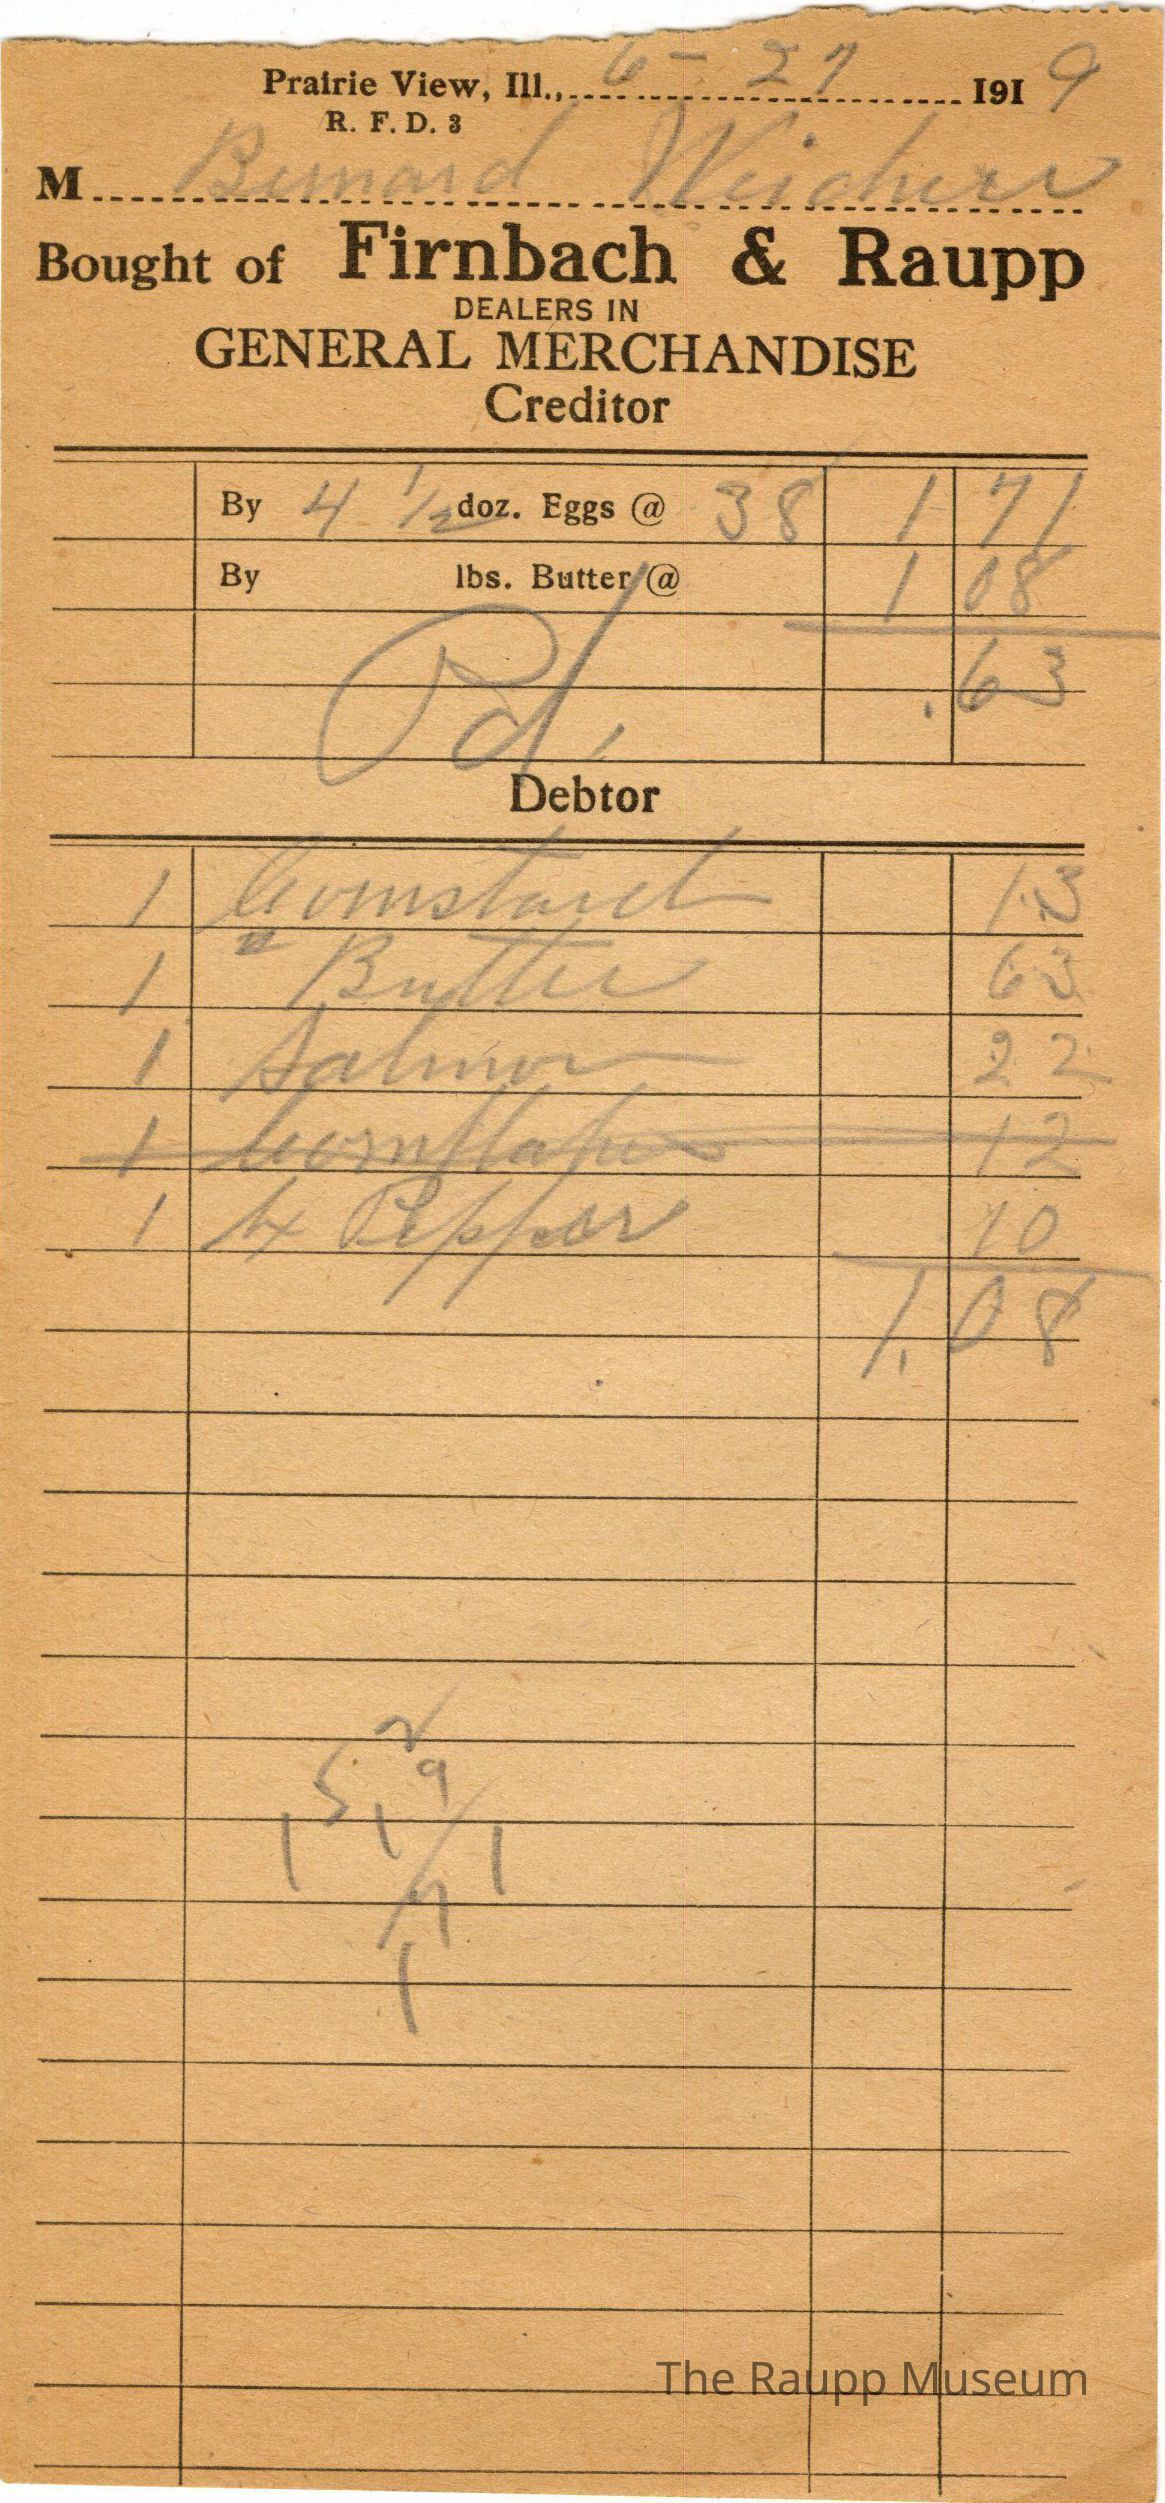 Prairie View, Ill., 6-27 1919
R. F. D. 3
M Bernard Weidner
Bought of Firnbach & Raupp
DEALERS IN
GENERAL MERCHANDISE
Creditor
By 4 1/2 doz. Eggs @ 38 1 71
By lbs. Butter @ 1 08
.63
Pd.
Debtor
1 Cornstarch 13
1 " Butter 63
1 Salmon 22
1 Cornflakes 12
1 1/4 Pepper 10
1.08
The Raupp Museum